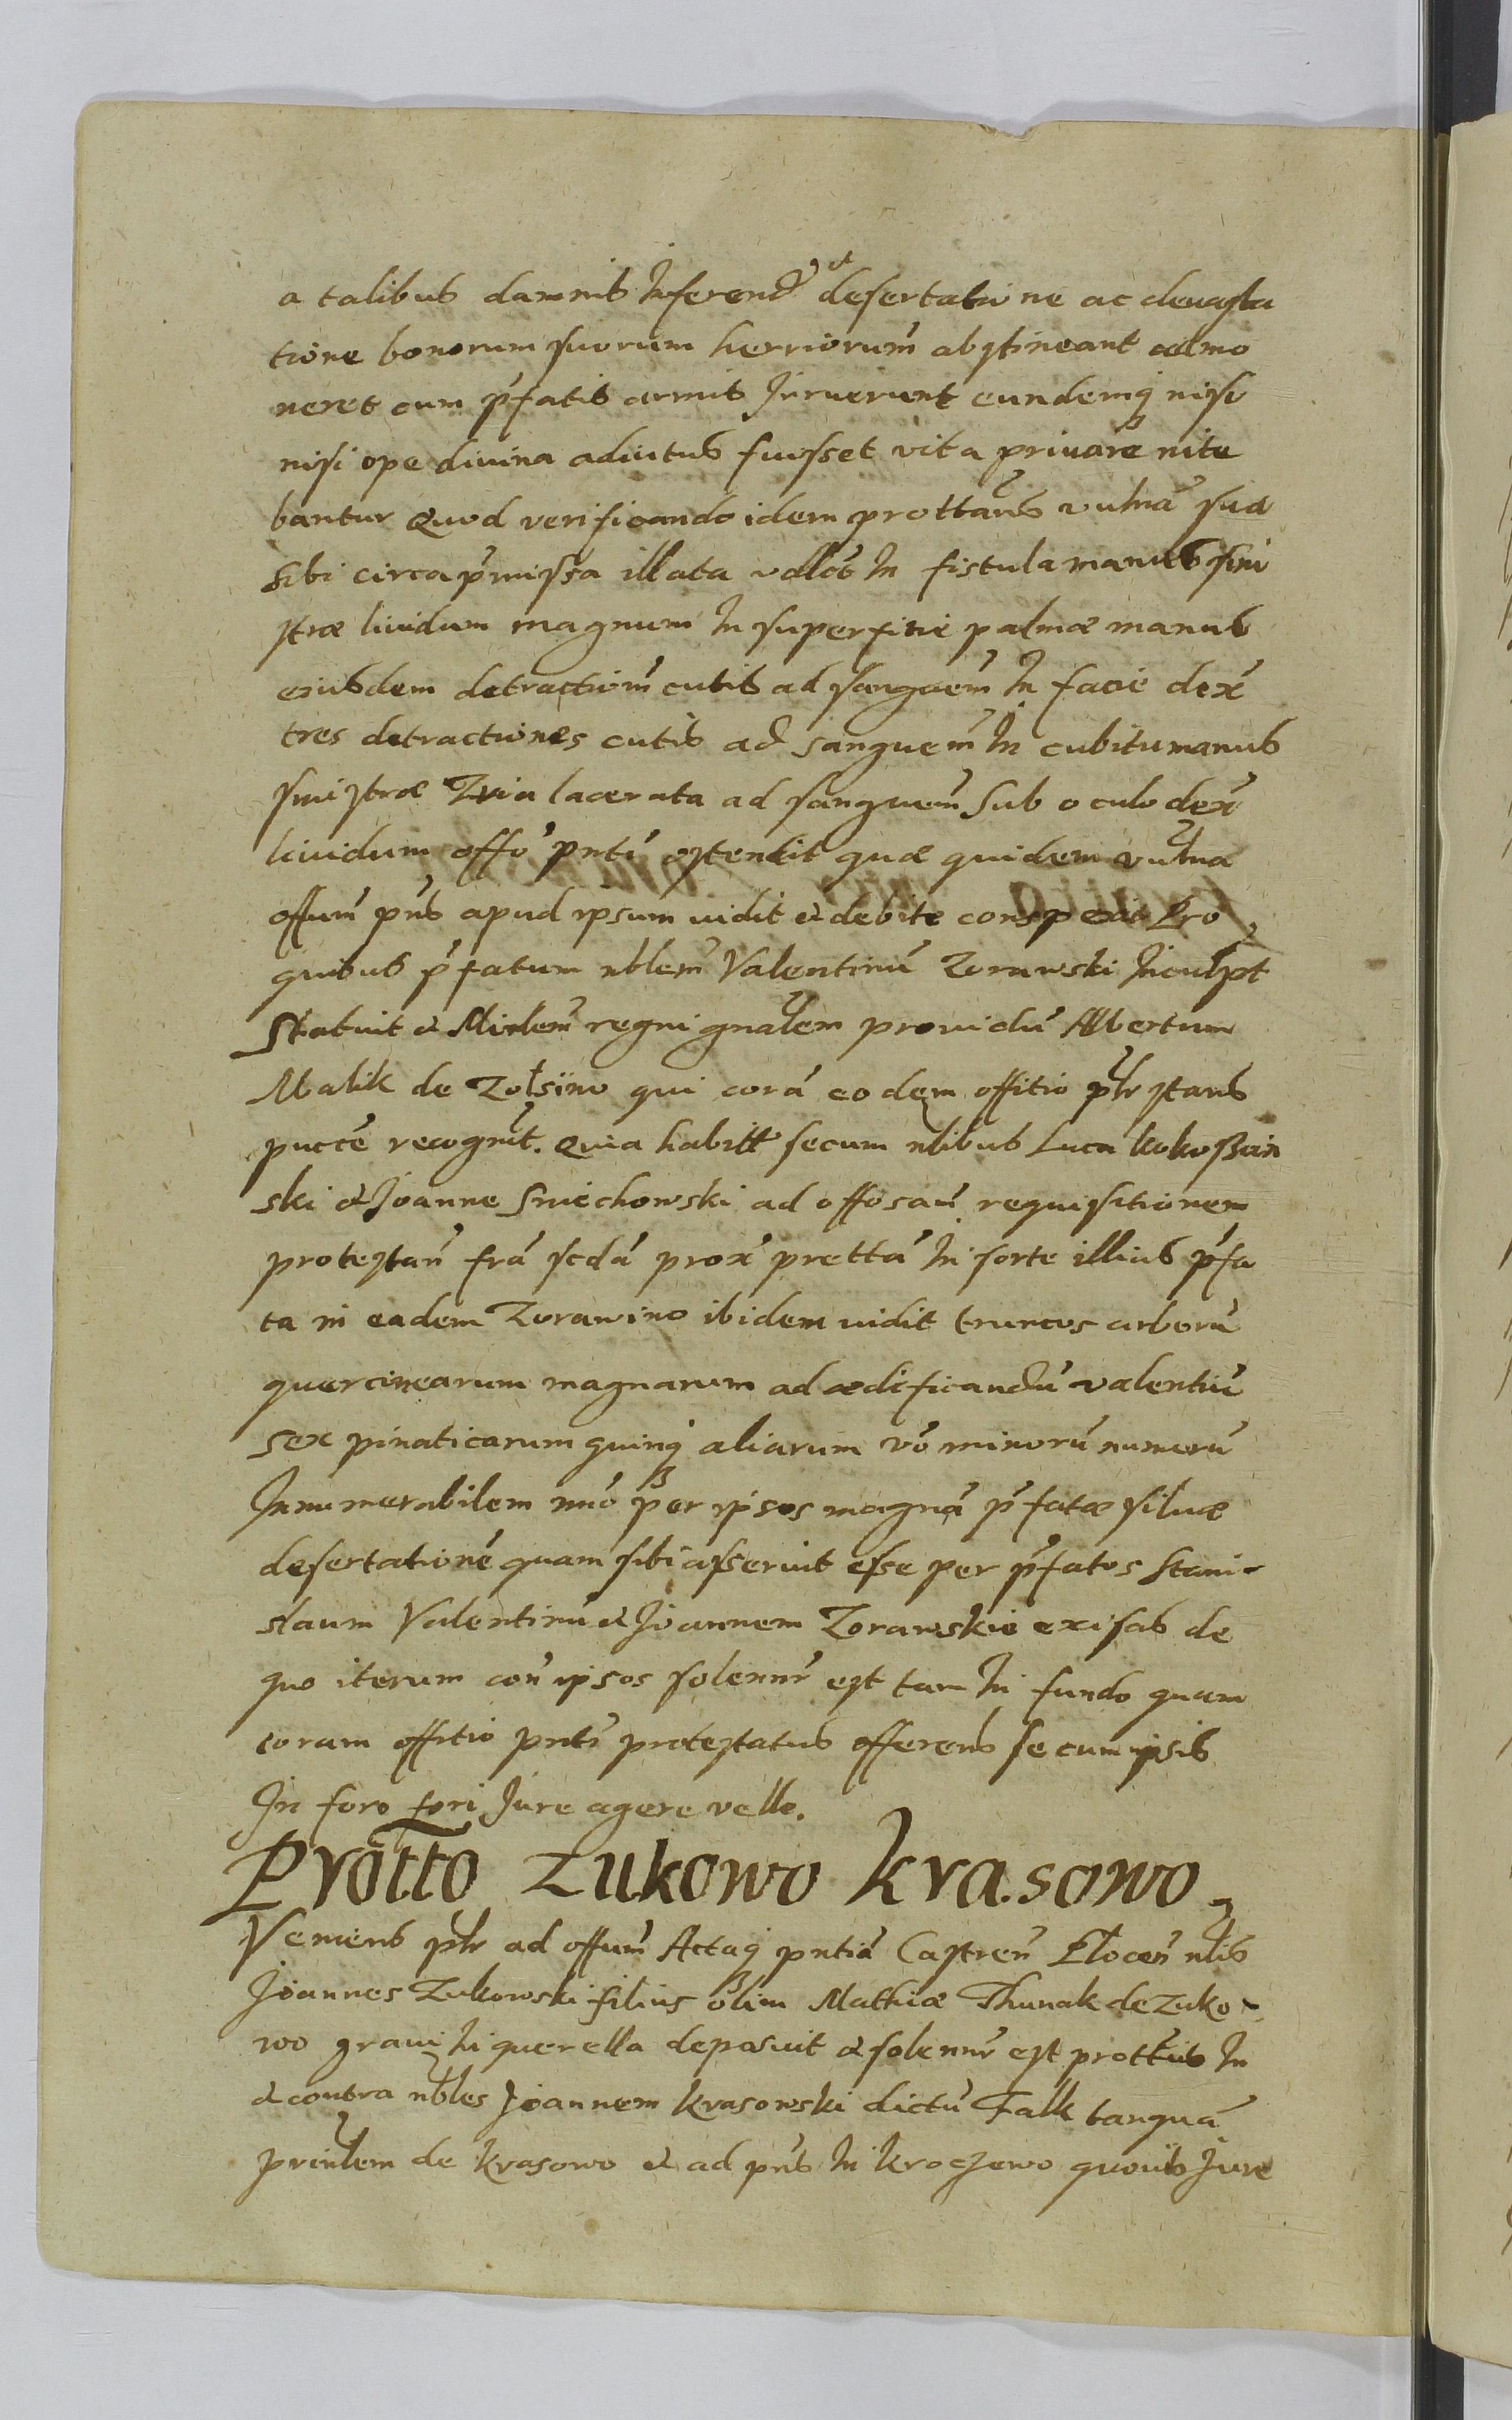 a talibus damnis Inferend et desertatione ac deuasta
tione bonorum suorum herriorum abstineant admo
neret cum pfatis armis Irruerunt eundemq nisi
nisi ope diuina adiutus fuisset vita priuare nite
bantur Quod verificando idem prottans vulna sua
sibi circa pmissa illata In fistula manus sini
stræ liuidum magnum In superficie palmæ manus
eiusdem detractiom cutis ad sanguem In facie dex
tres detractiones cutis ad sanguem In cubitu manus
sinistræ Tria lacerata ad sanguem Sub oculo dex
liuidum offo pnti ostendit quæ quidem vulna
offum pns apud ipsum vidit et debite conspexit Pro
quibus pfatum nblem Valentinu Zorawski Inculpt
Statuit et Minlem regni gnalem prouidu Albertum
Malik de qui cora eodem offitio plr stans
recognit. Quia habitt secum nlibus Luca kokoßin
ski et Joanne Smiechowski ad offosam requisitionem
protestan fra scda prox pretta In sorte illius pfa
ta in eadem Zorawino ibidem vidit truncos arboru
quercinearum magnarum ad ædificandu valentiu
sex pinaticarum quinq aliarum vo minoru numeru
Innumerabilem per ipsos magna pfatæ siluæ
desertatione quam sibi asseruit esse per pfatos Stani-
slaum Valentinu et Joannem Zorawskie de
quo iterum con ipsos solennr est tam In fundo quam
coram offitio pnti protestatus offerens se cum ipsis
In foro fori Jure agere velle.
Protto Zukowo krasowo
Veniens plr ad offum Actaq pntia Castren Plocen nlis
Joannes Zukowski filius olim Mathiæ Thunak de Zuko-
wo graui In querella deposuit et solennr est prottus In
et contra nbles Joannem krasowski dictu Falk tanqua
prinlem de krasowo et ad pns In kroczewo quouis Jure